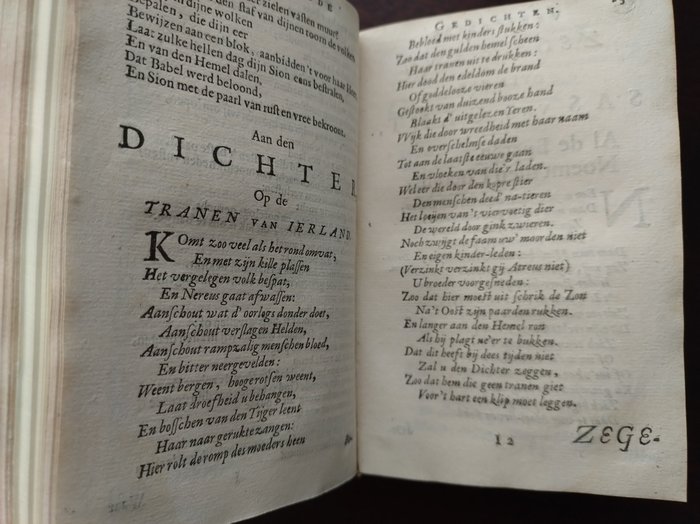 zielen vasten muur?
den staf van dijnen toorn de volken
dijne wolken
Bepalen, die dijn eer
Bewijzen aan een blok, aanbidden't voor haar Heer.
Laat zulke hellen dag dijn Sion eens bestralen,
En van den Hemel dalen,
Dat Babel werd beloond,
En Sion met de paarl van rust en vree bekroont.
Aan den
DICHTER,
Op de
TRANEN VAN IERLAND.
Komt zoo veel als het rond omvat,
En met zijn kille plassen
Het vergelegen volk bespat,
En Nereus gaat afwassen:
Aanschout wat d' oorlogs donder doet,
Aanschout verslagen Helden,
Aanschout rampzalig menschen bloed,
En bitter neergevelden:
Weent bergen, hoogerotsen weent,
Laat droefheid u behangen,
En bosschen van den Tijger leent
Haar naar geruktezangen:
Hier rolt de romp des moeders heen
GEDICHTEN.
Bebloed met kinders stukken:
Zoo dat den gulden hemel scheen
Haar tranen uit te drukken:
Hier dood den edeldom de brand
Of goddelooze vieren
Gestookt van duizend booze hand
Blaakt d' uitgeleezen Yeren.
Wijk die door wreedheid met haar naam
En overhelmse daden
Tot aan de laatste eeuwe gaan
En vloeken van die'r laden.
Weleer die door den kopre stier
Den menschen deed' na-tieren
Het loeijen van 't viervoetig dier
De wereld door gink zwieren.
Noch zwijgt de faam uw' moorden niet
En eigen kinder-leden:
(Verzinkt verzinkt gij Atreus niet)
U broeder voorgesneden:
Zoo dat hier moest uit schrik de Zon
Na't Oost zijn paarden rukken.
En langer aan den Hemel ron
Als hij plagt ne'er te bukken.
Dat dit heeft bij dees tijden niet
Zal u den Dichter zeggen,
Zoo dat hem die geen tranen giet
Voor't hart een klip moet leggen.
I 2
ZEGE-